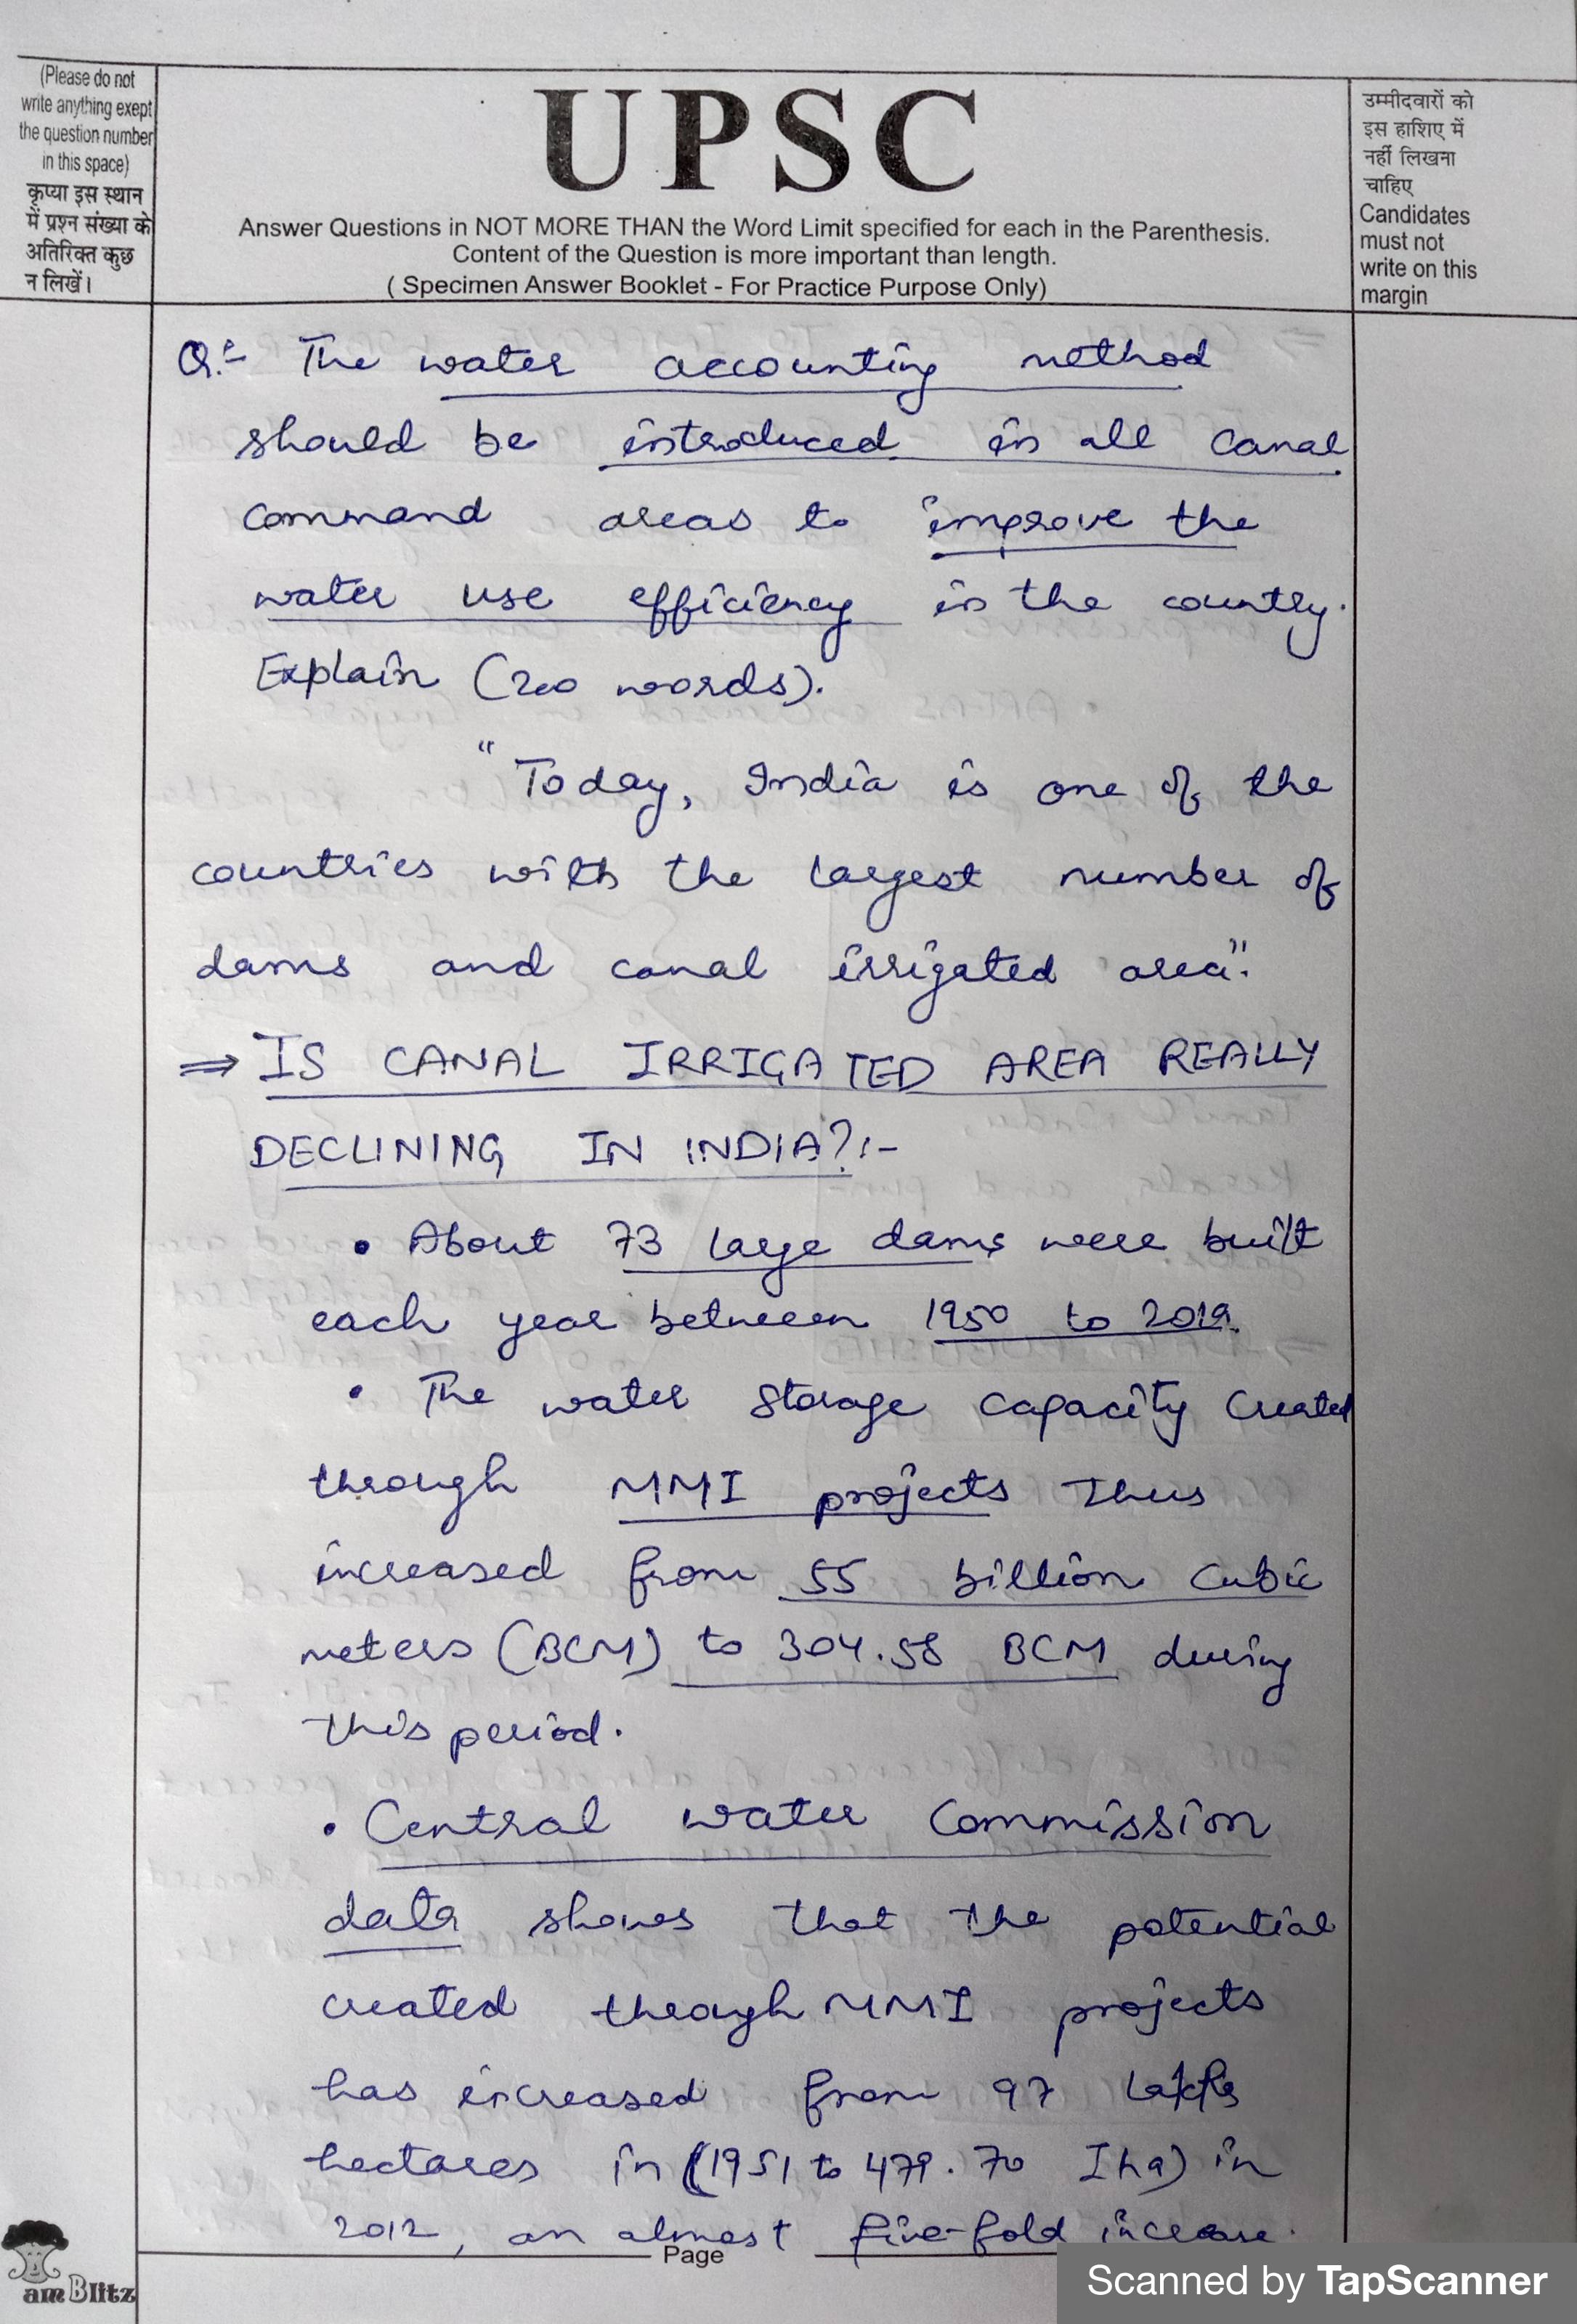 (Please do not
write anything exept
the question number
in this space)
कृप्या इस स्थान
में प्रश्न संख्या के
अतिरिक्त कुछ
न लिखें।
UPSC
Answer Questions in NOT MORE THAN the Word Limit specified for each in the Parenthesis.
Content of the Question is more important than length.
( Specimen Answer Booklet - For Practice Purpose Only)
उम्मीदवारों को
इस हाशिए में
नहीं लिखना
चाहिए
Candidates
must not
write on this
margin
Q:- The water accounting method
should be introduced in all canal
command areas to improve the
water use efficiency in the country.
Explain (200 words).
"Today, India is one of the
countries with the largest number of
dams and canal irrigated area".
⇒ IS CANAL IRRIGATED AREA REALLY
DECLINING IN INDIA?:-
• About 73 large dams were built
each year between 1950 to 2019.
• The water storage capacity created
through MMI projects thus
increased from 55 billion cubic
meters (BCM) to 304.58 BCM during
this period.
• Central water commission
data shows that the potential
created through MMI projects
has increased from 97 lakhs
hectares in (1951 to 479.70 Iha) in
2012, an almost five-fold increase.
Page
am Blitz
Scanned by TapScanner